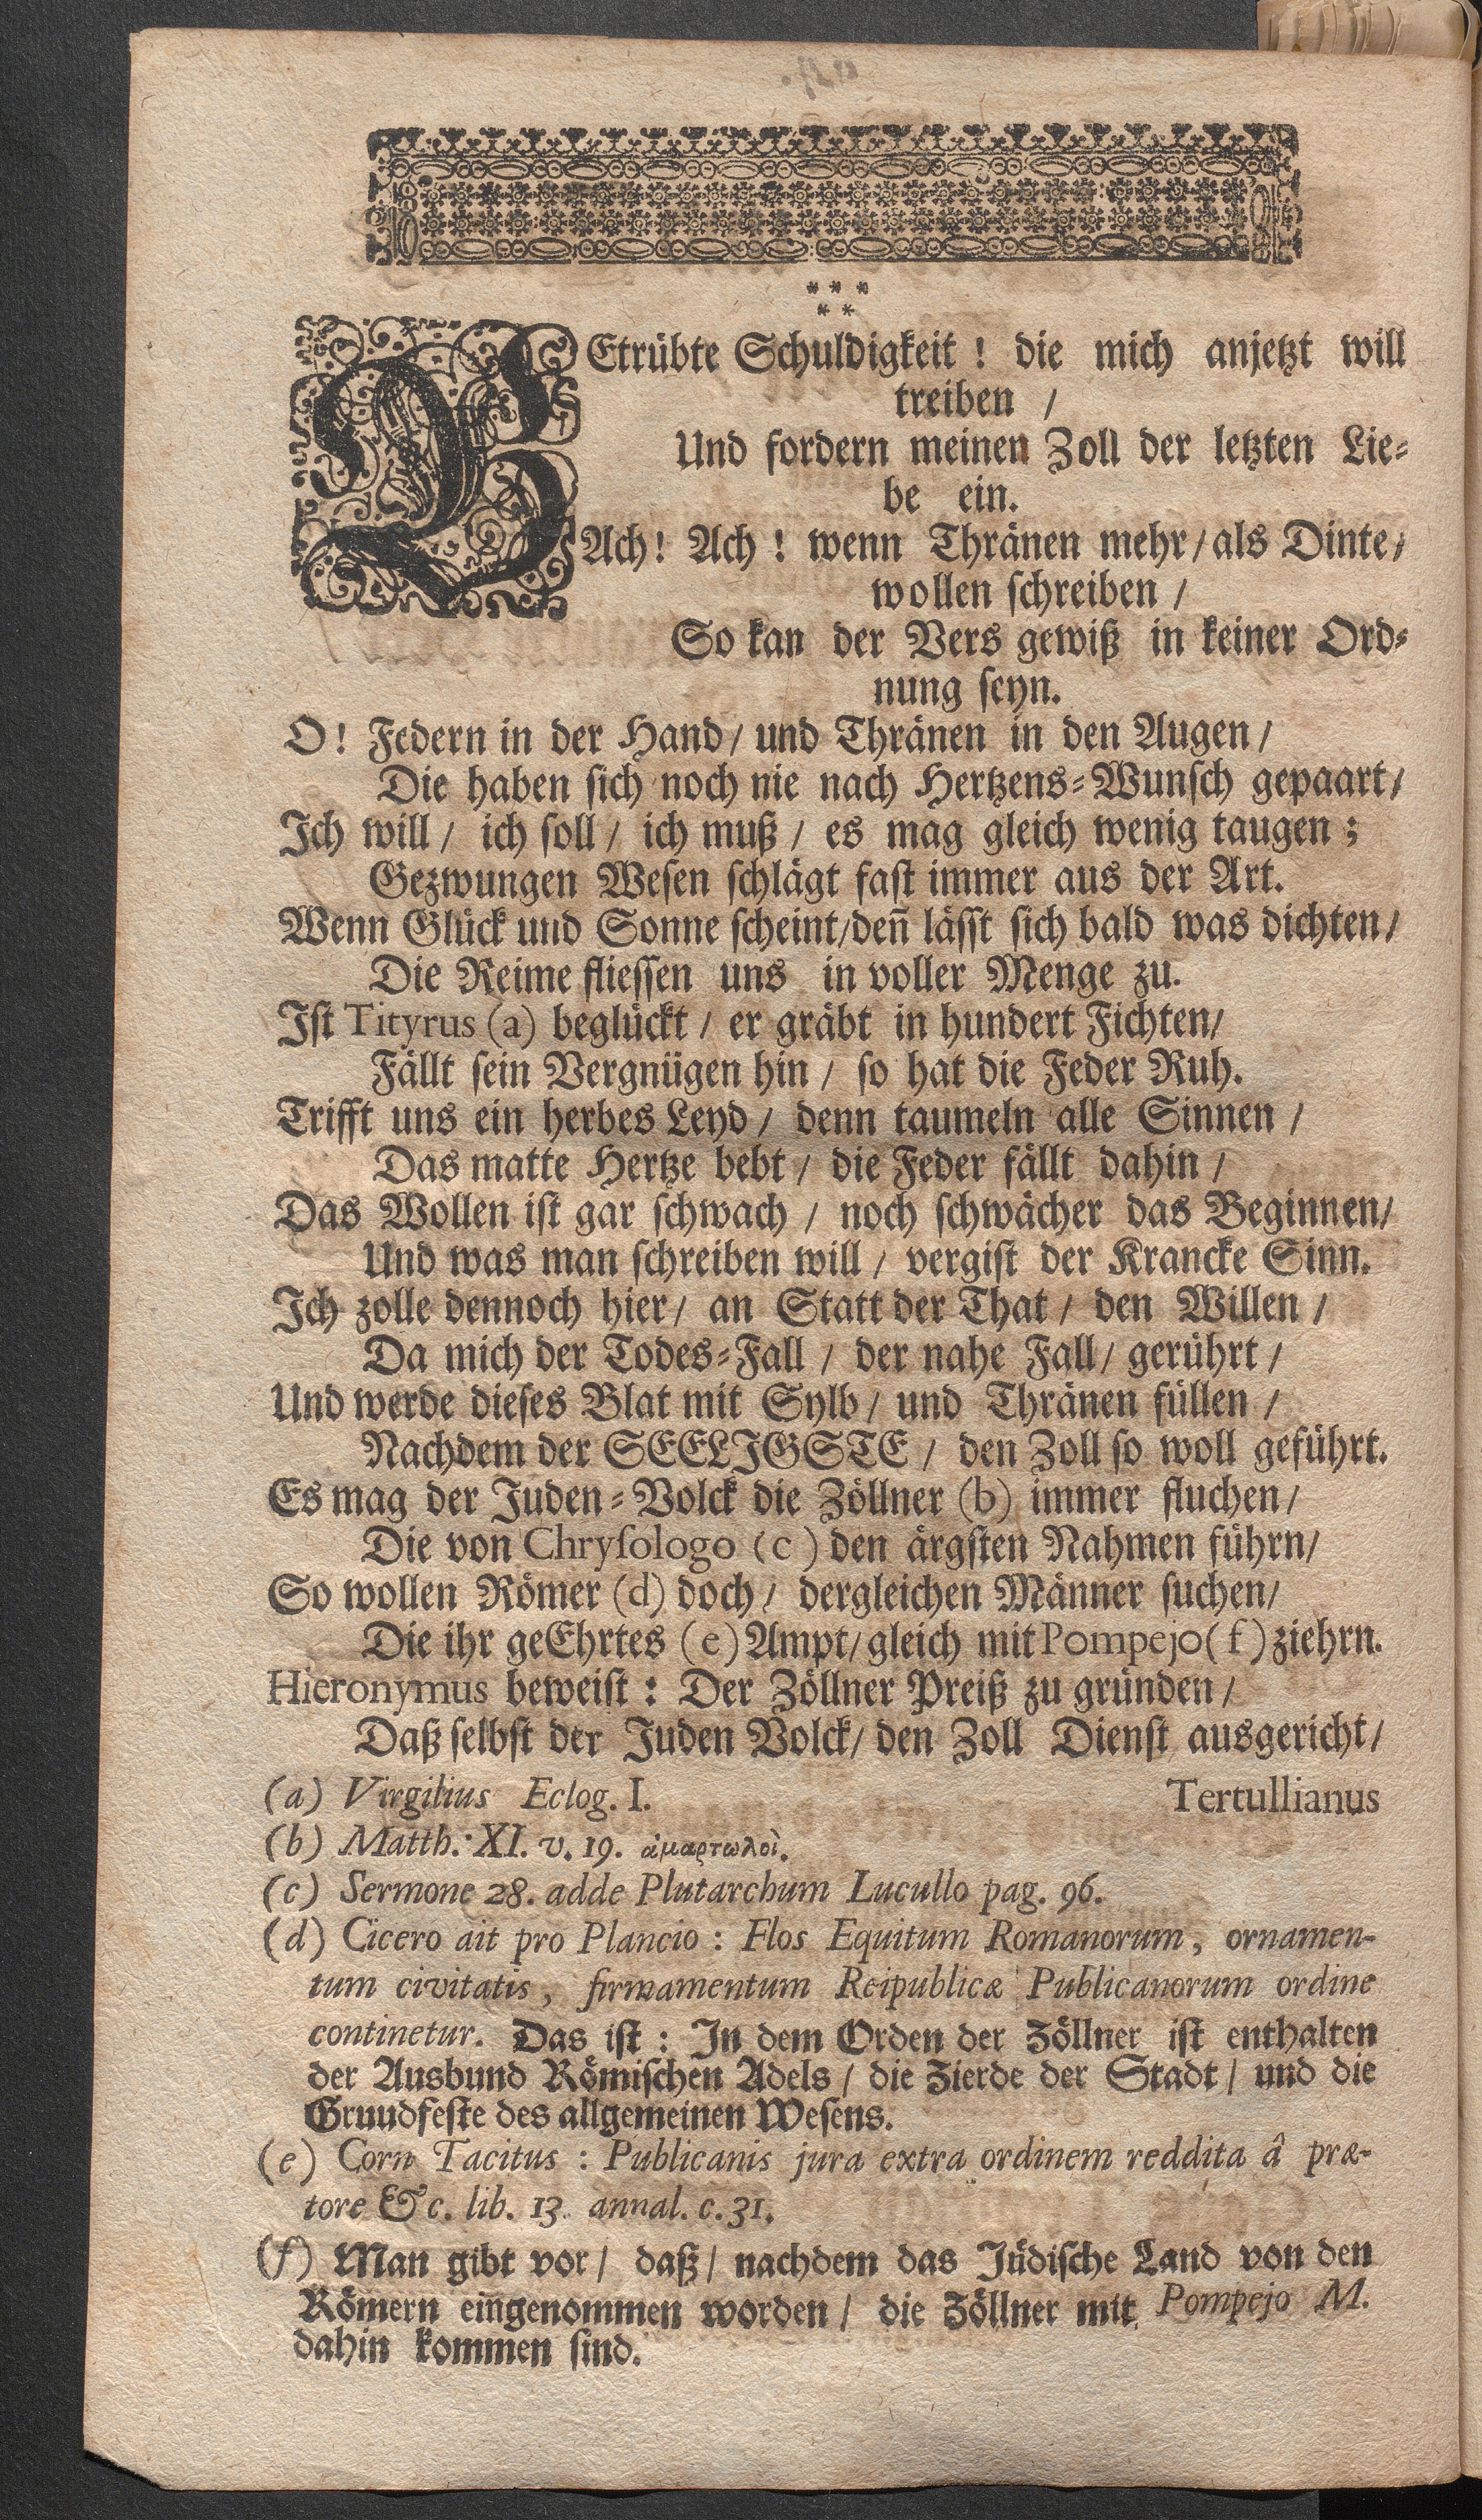 * * *
* *
BEtrübte Schuldigkeit ! die mich anjetzt will
treiben /
Und fordern meinen Zoll der letzten Lie⸗
be ein.
Ach! Ach ! wenn Thränen mehr / als Dinte /
wollen schreiben /
So kan der Vers gewiß in keiner Ord⸗
nung seyn.
O! Federn in der Hand / und Thränen in den Augen /
Die haben sich noch nie nach Hertzens⸗Wunsch gepaart /
Ich will / ich soll / ich muß / es mag gleich wenig taugen ;
Gezwungen Wesen schlägt fast immer aus der Art.
Wenn Glück und Sonne scheint/den̄ lässt sich bald was dichten /
Die Reime fliessen uns in voller Menge zu.
Ist Tityrus (a) beglückt / er gräbt in hundert Fichten /
Fällt sein Vergnügen hin / so hat die Feder Ruh.
Trifft uns ein herbes Leyd / denn taumeln alle Sinnen /
Das matte Hertze bebt / die Feder fällt dahin /
Das Wollen ist gar schwach / noch schwächer das Beginnen /
Und was man schreiben will / vergist der Krancke Sinn.
Ich zolle dennoch hier / an Statt der That / den Willen /
Da mich der Todes⸗Fall / der nahe Fall / gerührt /
Und werde dieses Blat mit Sylb / und Thränen füllen /
Nachdem der SEELIGSTE / den Zoll so woll geführt.
Es mag der Juden⸗Volck die Zöllner (b) immer fluchen /
Die von Chrysologo (c) den ärgsten Nahmen führn /
So wollen Römer (d) doch / dergleichen Männer suchen /
Die ihr geEhrtes (e) Ampt / gleich mit Pompejo (f) ziehrn.
Hieronymus beweist : Der Zöllner Preiß zu gründen /
Daß selbst der Juden Volck / den Zoll Dienst ausgericht /
Tertullianus
(a) Virgilius Eclog. I.
(b) Matth. XI. v. 19. ἁμαρτωλοὶ.
(c) Sermone 28. adde Plutarchum Lucullo pag. 96.
(d) Cicero ait pro Plancio : Flos Equitum Romanorum, ornamen-
tum civitatis, firmamentum Reipublicæ Publicanorum ordine
continetur. Das ist : In dem Orden der Zöllner ist enthalten
der Ausbund Römischen Adels / die Zierde der Stadt / und die
Gruudfeste des allgemeinen Wesens.
(e) Corn Tacitus : Publicanis jura extra ordinem reddita â præ-
tore &c. lib. 13. annal. c. 31.
(f) Man gibt vor / daß / nachdem das Jüdische Land von den
Römern eingenommen worden / die Zöllner mit Pompejo M.
dahin kommen sind.